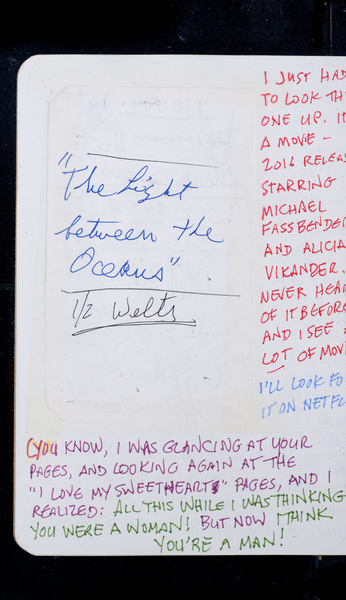 "The Light
between the
Oceans"
1/2 Welts
I JUST HAD
TO LOOK TH
ONE UP. I
A MOVIE –
2016 RELEA
STARRING
MICHAEL
FASSBENDE
AND ALICIA
VIKANDER.
NEVER HEA
OF IT BEFOR
AND I SEE A
LOT OF MOVI
I'LL LOOK FO
IT ON NETFL
(YOU KNOW, I WAS GLANCING AT YOUR
PAGES, AND LOOKING AGAIN AT THE
"I LOVE MY SWEETHEART" PAGES, AND I
REALIZED: ALL THIS WHILE I WAS THINKING
YOU WERE A WOMAN! BUT NOW I THINK
YOU'RE A MAN!